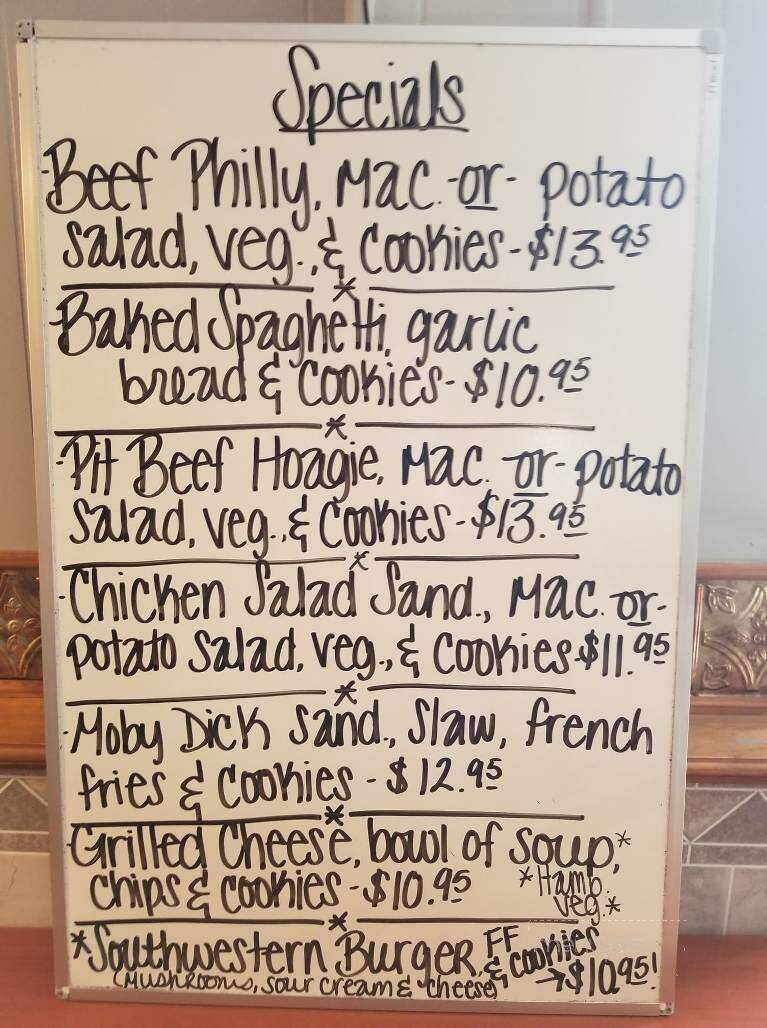 Specials
-Beef Philly, Mac. -or- potato
salad, veg., & cookies - $13.95
*
-Baked Spaghetti, garlic
bread & cookies - $10.95
*
-Pit Beef Hoagie, Mac. -or- potato
salad, veg., & cookies - $13.95
*
-Chicken Salad Sand., Mac. -or-
potato salad, veg., & cookies - $11.95
*
-Moby Dick Sand., Slaw, french
fries & cookies - $12.95
*
-Grilled Cheese, bowl of soup,*
chips & cookies - $10.95 *Hamb.
Veg.*
*
*Southwestern Burger, FF
& cookies
(Mushrooms, sour cream & cheese) → $10.95!